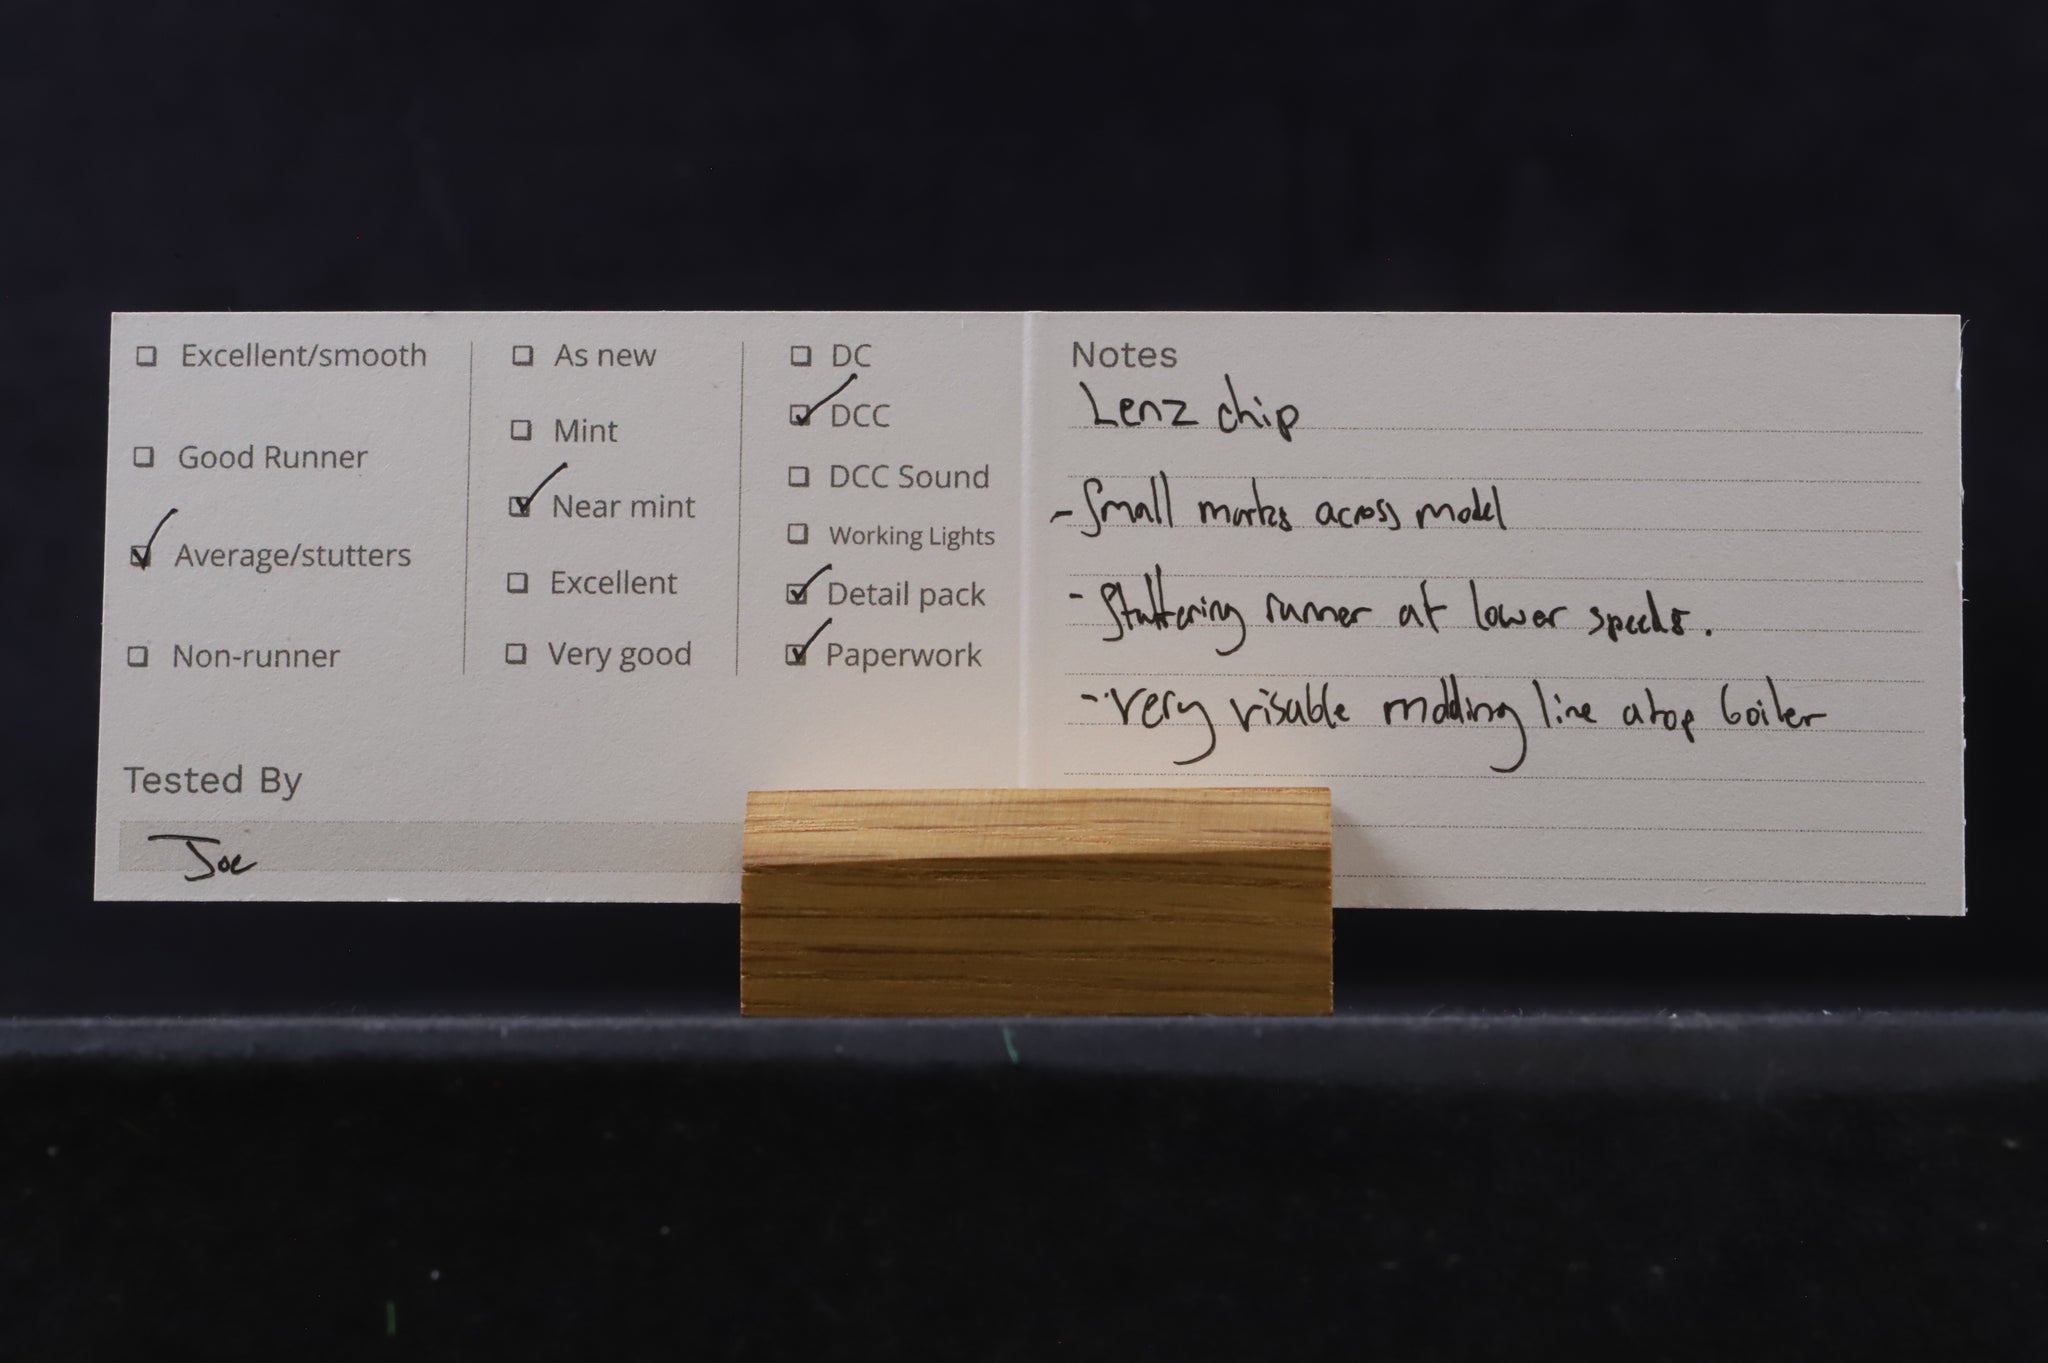 Excellent/smooth
Good Runner
Average/stutters
Non-runner
As new
Mint
Near mint
Excellent
Very good
DC
DCC
DCC Sound
Working Lights
Detail pack
Paperwork
Tested By
Joe
Notes
Lenz chip
- Small marks across model
- Stuttering runner at lower speeds.
- Very visable molding line atop boiler